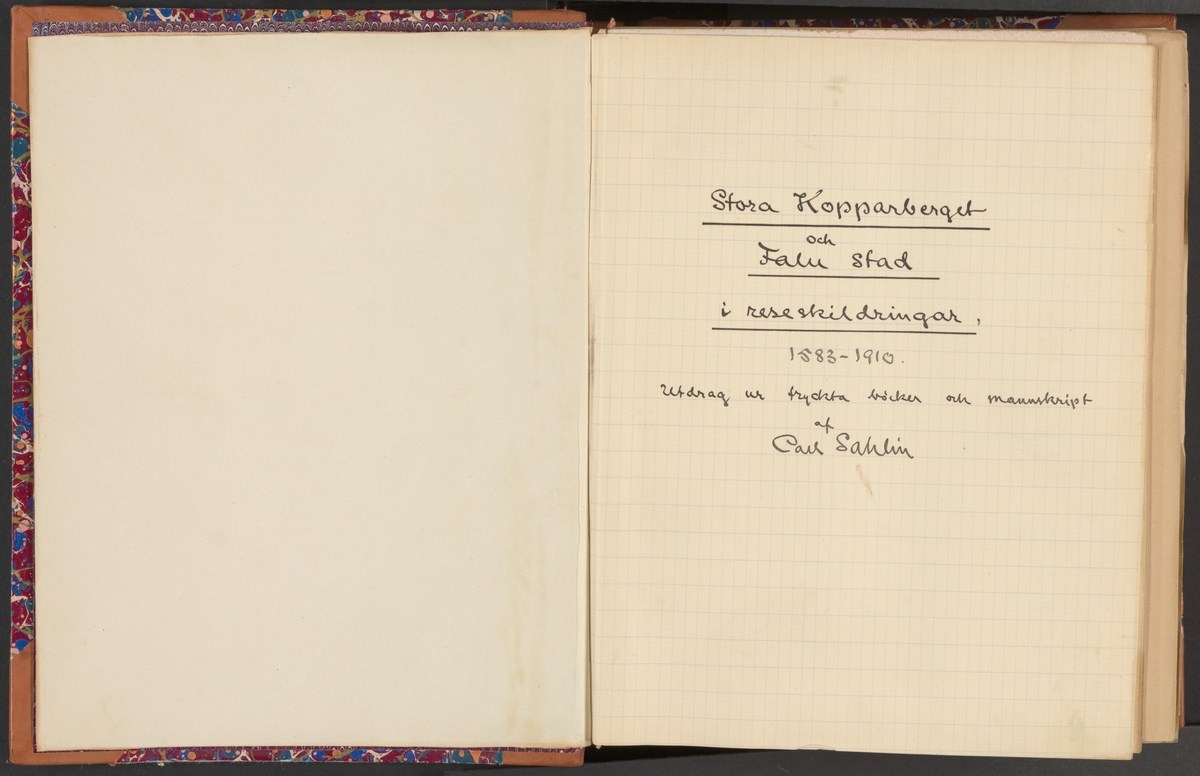 Stora Kopparberget
och
Falu stad
i reseskildringar,
1583-1910.
Utdrag ur tryckta böcker och manuskript
af
Carl Sahlin